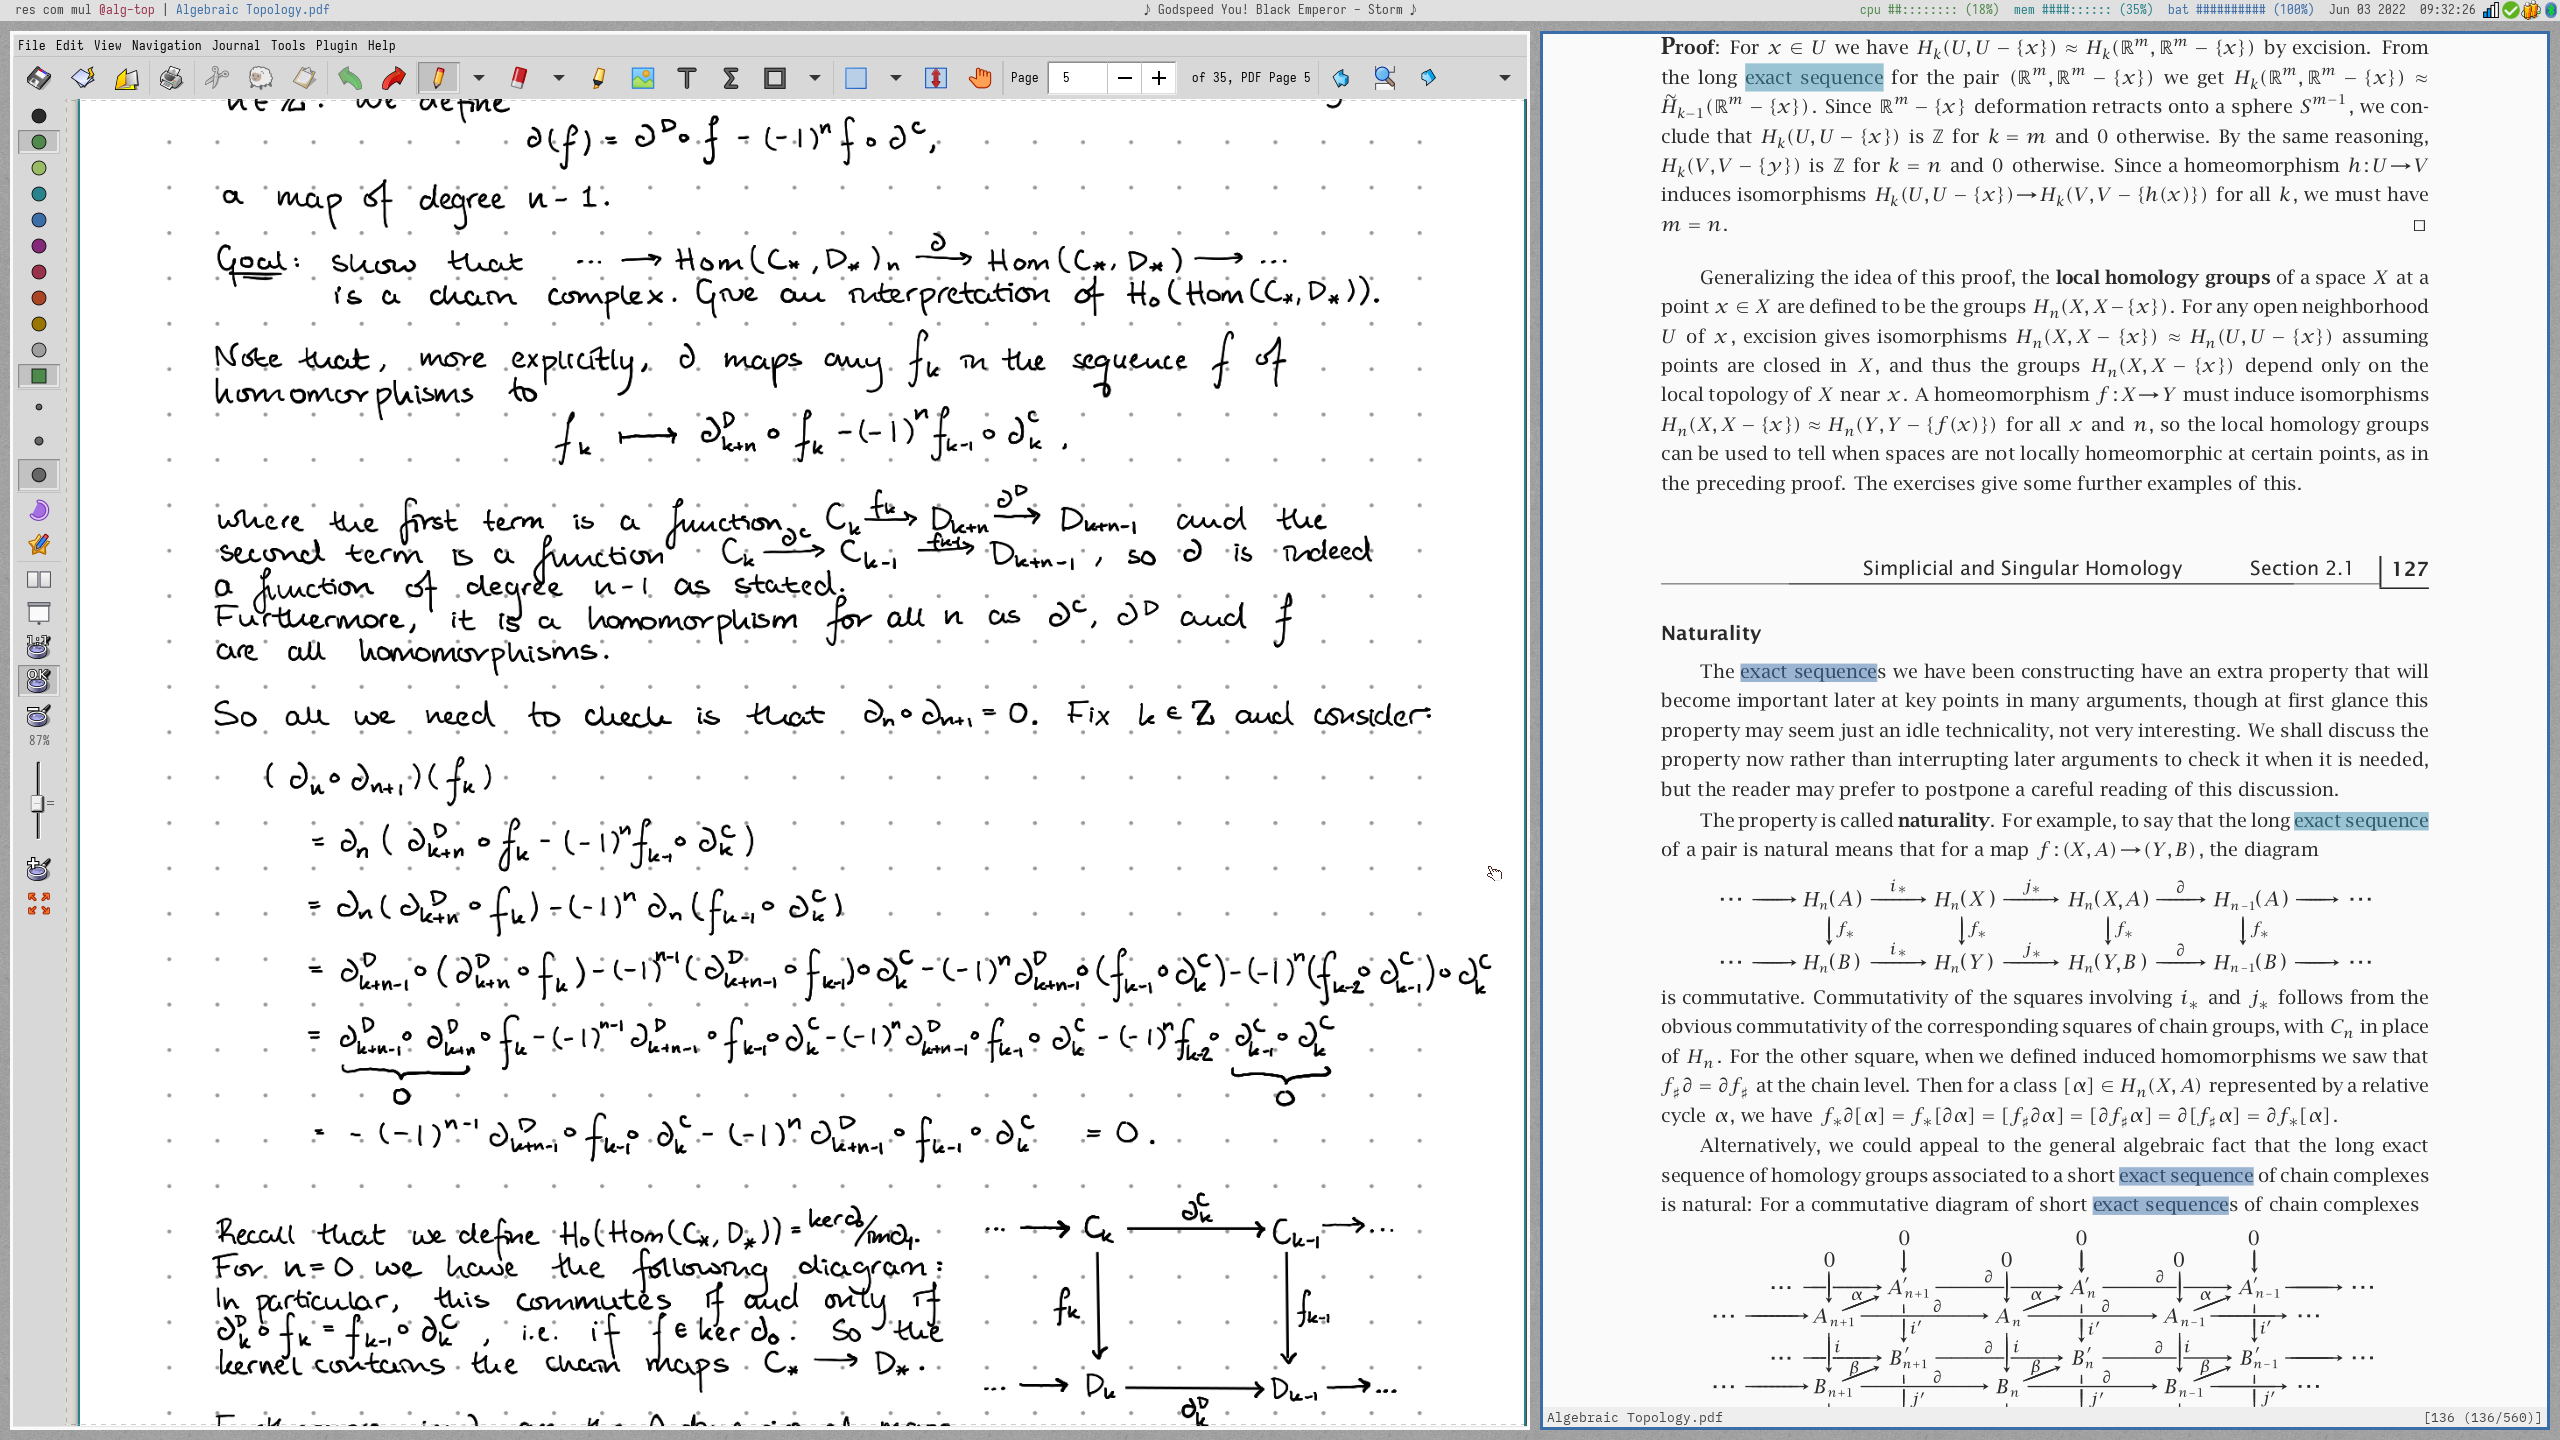 res com mul @alg-top | Algebraic Topology.pdf
♪ Godspeed You! Black Emperor - Storm ♪
cpu ##:::::::: (18%) mem ####:::::: (35%) bat ########## (100%) Jun 03 2022 09:32:26
File Edit View Navigation Journal Tools Plugin Help
Page 5 of 35, PDF Page 5
87%
n ∈ ℤ. We define
∂(f) = ∂ᴰ∘f - (-1)ⁿ f∘∂ᶜ,
a map of degree n-1.
Goal: show that ... → Hom(C_*, D_*)_n →^∂ Hom(C_*, D_*) → ...
is a chain complex. Give an interpretation of H₀(Hom(C_*, D_*)).
Note that, more explicitly, ∂ maps any f_k in the sequence f of
homomorphisms to
f_k ↦ ∂^D_{k+n} ∘ f_k - (-1)^n f_{k-1} ∘ ∂^C_k ,
where the first term is a function C_k →^{f_k} D_{k+n} →^{∂^D} D_{k+n-1} and the
second term is a function C_k →^{∂^C} C_{k-1} →^{f_{k-1}} D_{k+n-1}, so ∂ is indeed
a function of degree n-1 as stated.
Furthermore, it is a homomorphism for all n as ∂^C, ∂^D and f
are all homomorphisms.
So all we need to check is that ∂_n∘∂_{n+1} = 0. Fix k ∈ ℤ and consider:
(∂_n∘∂_{n+1})(f_k)
= ∂_n(∂^D_{k+n} ∘ f_k - (-1)^n f_{k-1} ∘ ∂^C_k)
= ∂_n(∂^D_{k+n} ∘ f_k) - (-1)^n ∂_n(f_{k-1} ∘ ∂^C_k)
= ∂^D_{k+n-1} ∘ (∂^D_{k+n} ∘ f_k) - (-1)^{n-1}(∂^D_{k+n-1} ∘ f_{k-1}) ∘ ∂^C_k - (-1)^n ∂^D_{k+n-1} ∘ (f_{k-1} ∘ ∂^C_k) - (-1)^n (f_{k-2} ∘ ∂^C_{k-1}) ∘ ∂^C_k
= ∂^D_{k+n-1} ∘ ∂^D_{k+n} ∘ f_k - (-1)^{n-1} ∂^D_{k+n-1} ∘ f_{k-1} ∘ ∂^C_k - (-1)^n ∂^D_{k+n-1} ∘ f_{k-1} ∘ ∂^C_k - (-1)^n f_{k-2} ∘ ∂^C_{k-1} ∘ ∂^C_k
0 0
= - (-1)^{n-1} ∂^D_{k+n-1} ∘ f_{k-1} ∘ ∂^C_k - (-1)^n ∂^D_{k+n-1} ∘ f_{k-1} ∘ ∂^C_k = 0.
Recall that we define H₀(Hom(C_*, D_*)) = ker ∂₀/im ∂₁.
For n=0 we have the following diagram:
In particular, this commutes if and only if
∂^D_k ∘ f_k = f_{k-1} ∘ ∂^C_k, i.e. if f ∈ ker ∂₀. So the
kernel contains the chain maps C_* → D_*.
... → C_k →^{∂^C_k} C_{k-1} → ...
f_k f_{k-1}
... → D_k → D_{k-1} → ...
∂^D_k
Proof: For x ∈ U we have H_k(U, U − {x}) ≈ H_k(ℝ^m, ℝ^m − {x}) by excision. From
the long exact sequence for the pair (ℝ^m, ℝ^m − {x}) we get H_k(ℝ^m, ℝ^m − {x}) ≈
H̃_{k−1}(ℝ^m − {x}). Since ℝ^m − {x} deformation retracts onto a sphere S^{m−1}, we con-
clude that H_k(U, U − {x}) is ℤ for k = m and 0 otherwise. By the same reasoning,
H_k(V, V − {y}) is ℤ for k = n and 0 otherwise. Since a homeomorphism h : U → V
induces isomorphisms H_k(U, U − {x}) → H_k(V, V − {h(x)}) for all k, we must have
m = n. □
Generalizing the idea of this proof, the local homology groups of a space X at a
point x ∈ X are defined to be the groups H_n(X, X − {x}). For any open neighborhood
U of x, excision gives isomorphisms H_n(X, X − {x}) ≈ H_n(U, U − {x}) assuming
points are closed in X, and thus the groups H_n(X, X − {x}) depend only on the
local topology of X near x. A homeomorphism f : X → Y must induce isomorphisms
H_n(X, X − {x}) ≈ H_n(Y, Y − {f(x)}) for all x and n, so the local homology groups
can be used to tell when spaces are not locally homeomorphic at certain points, as in
the preceding proof. The exercises give some further examples of this.
Simplicial and Singular Homology Section 2.1 127
Naturality
The exact sequences we have been constructing have an extra property that will
become important later at key points in many arguments, though at first glance this
property may seem just an idle technicality, not very interesting. We shall discuss the
property now rather than interrupting later arguments to check it when it is needed,
but the reader may prefer to postpone a careful reading of this discussion.
The property is called naturality. For example, to say that the long exact sequence
of a pair is natural means that for a map f : (X, A) → (Y, B), the diagram
··· → H_n(A) →^{i_*} H_n(X) →^{j_*} H_n(X, A) →^∂ H_{n−1}(A) → ···
f_* f_* f_* f_*
··· → H_n(B) →^{i_*} H_n(Y) →^{j_*} H_n(Y, B) →^∂ H_{n−1}(B) → ···
is commutative. Commutativity of the squares involving i_* and j_* follows from the
obvious commutativity of the corresponding squares of chain groups, with C_n in place
of H_n. For the other square, when we defined induced homomorphisms we saw that
f_♯∂ = ∂f_♯ at the chain level. Then for a class [α] ∈ H_n(X, A) represented by a relative
cycle α, we have f_*∂[α] = f_*[∂α] = [f_♯∂α] = [∂f_♯α] = ∂[f_♯α] = ∂f_*[α].
Alternatively, we could appeal to the general algebraic fact that the long exact
sequence of homology groups associated to a short exact sequence of chain complexes
is natural: For a commutative diagram of short exact sequences of chain complexes
0 0 0
0 0 0
··· → A'_{n+1} →^∂ A'_n →^∂ A'_{n−1} → ···
α α α
··· → A_{n+1} →^∂ A_n →^∂ A_{n−1} → ···
i i' i i' i i'
··· → B'_{n+1} →^∂ B'_n →^∂ B'_{n−1} → ···
β β β
··· → B_{n+1} →^∂ B_n →^∂ B_{n−1} → ···
j' j' j'
Algebraic Topology.pdf [136 (136/560)]